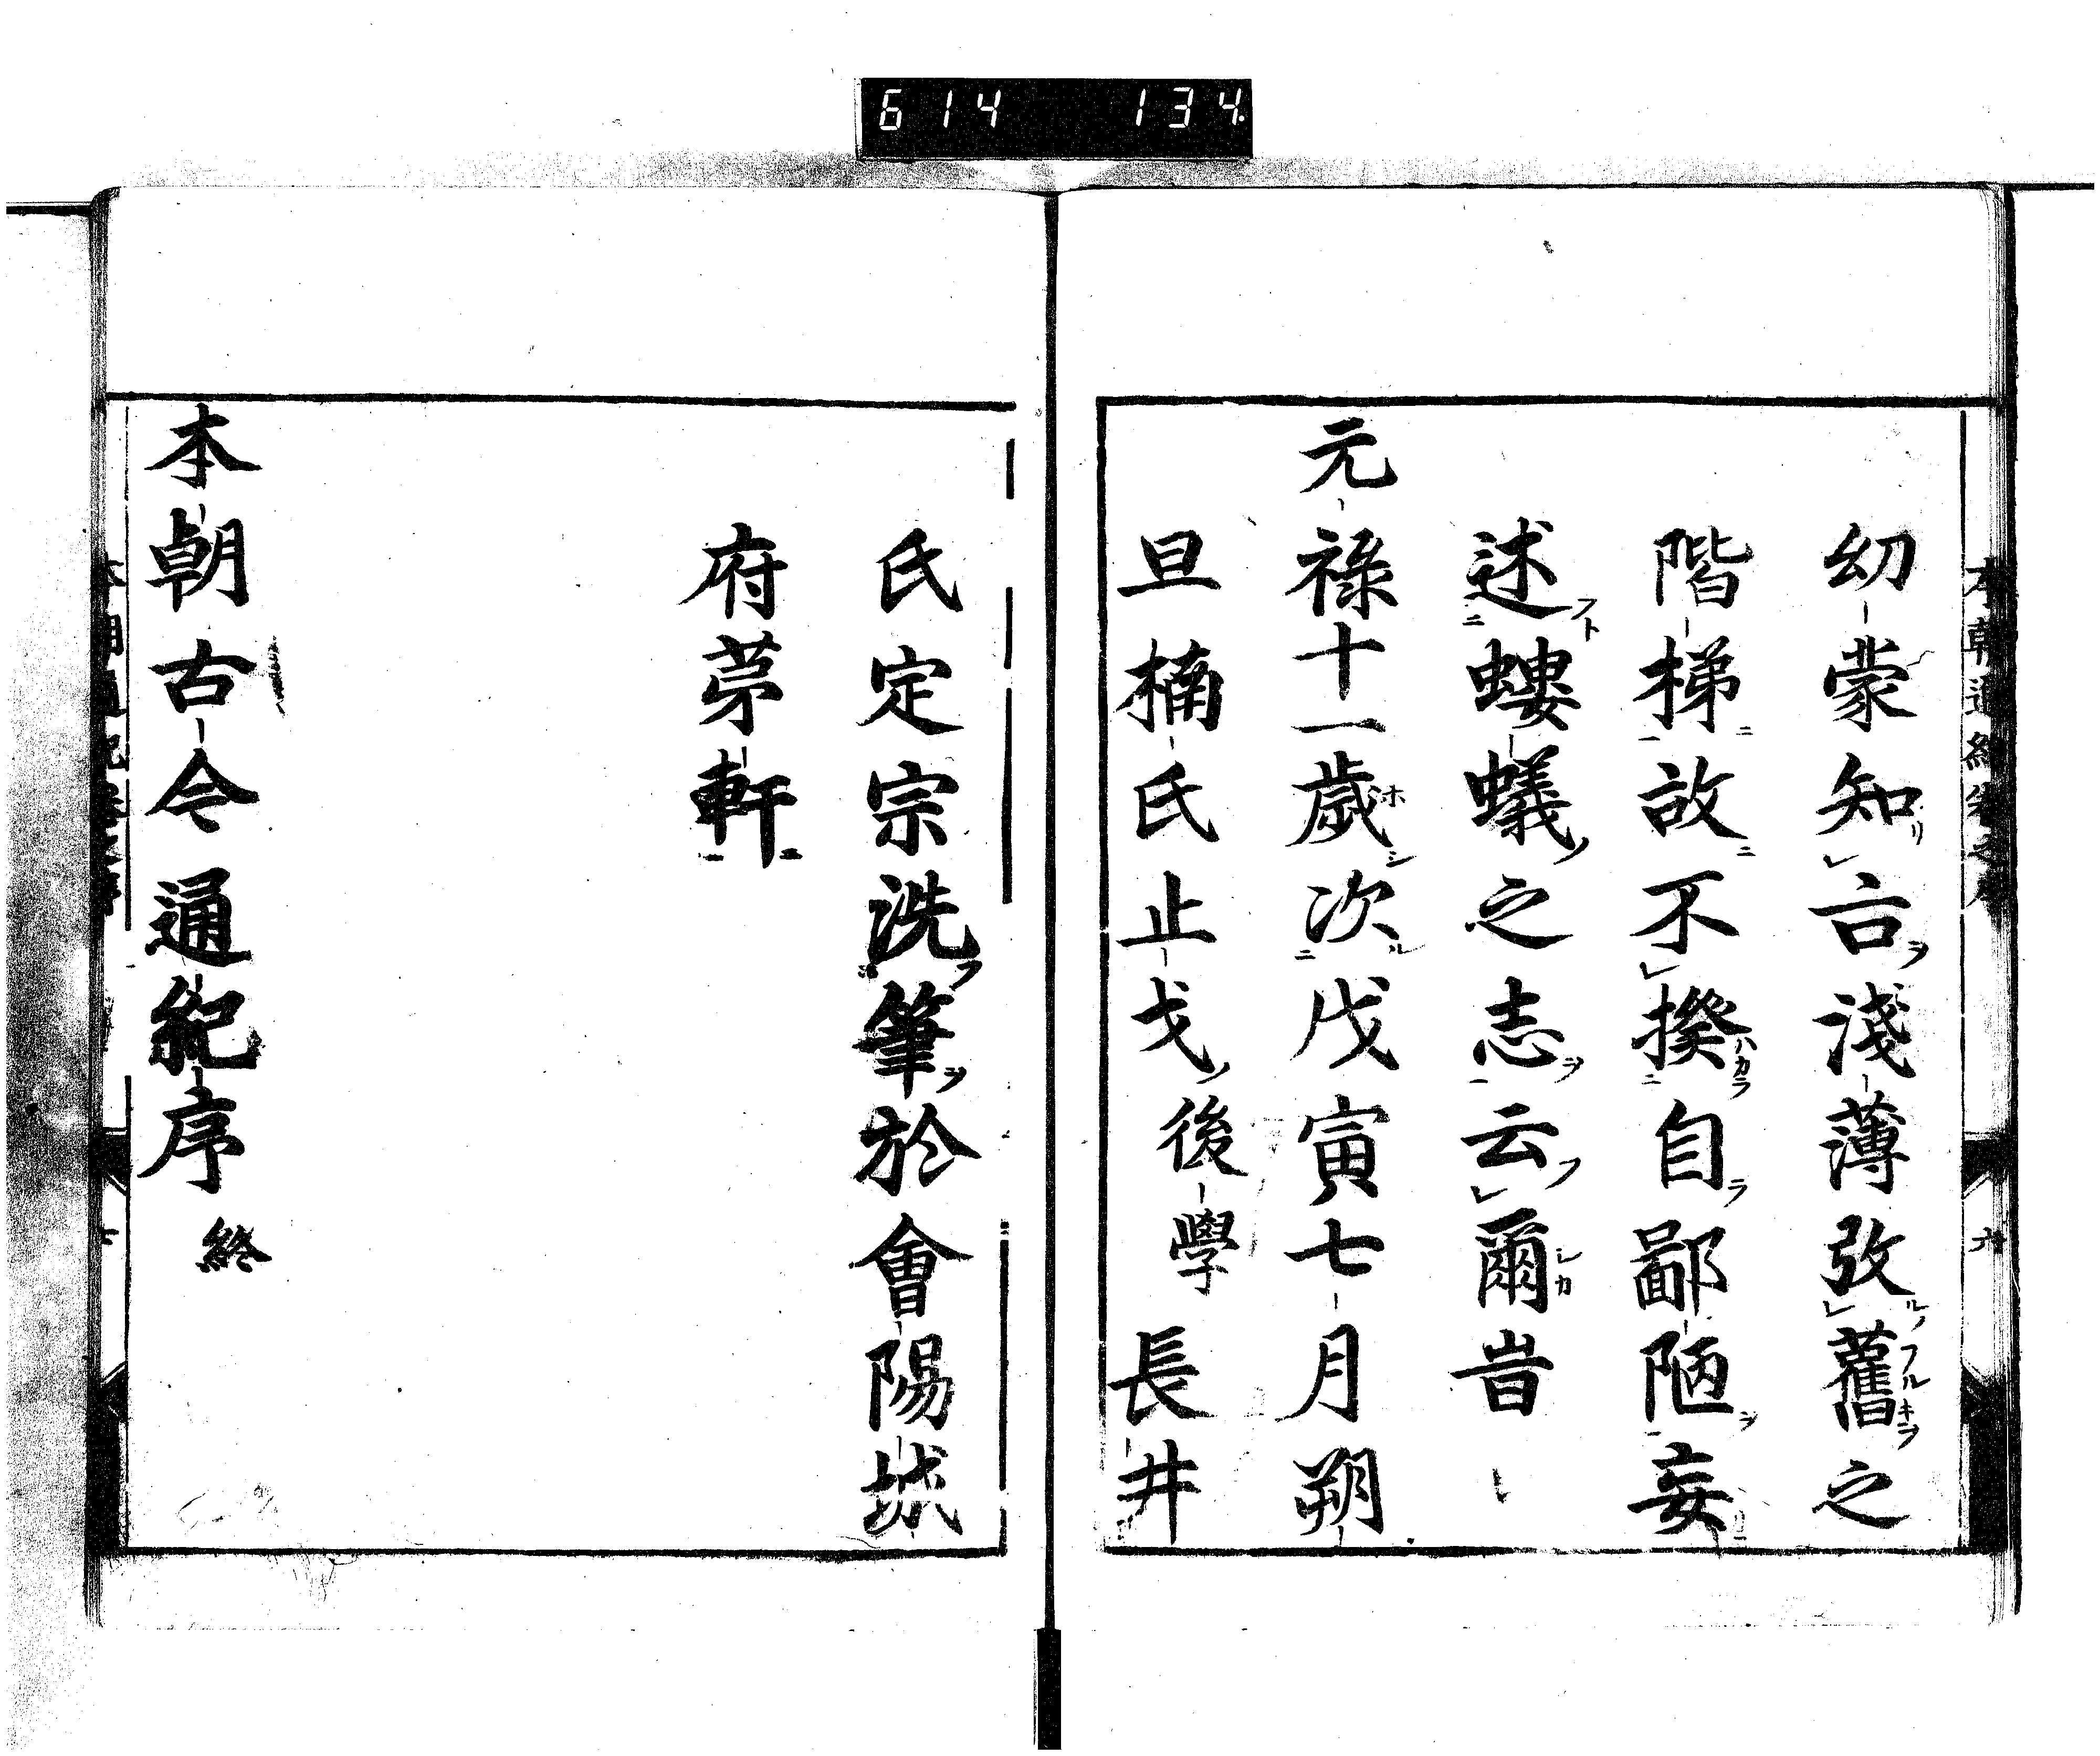 614 134
幼蒙知言淺薄攷舊之
階梯故不揆自鄙陋妄
述螻蟻之志云爾旹
元祿十一歲次戊寅七月朔
旦楠氏止戈後學長井
氏定宗洗筆於會陽城
府茅軒
本朝古今通紀序終